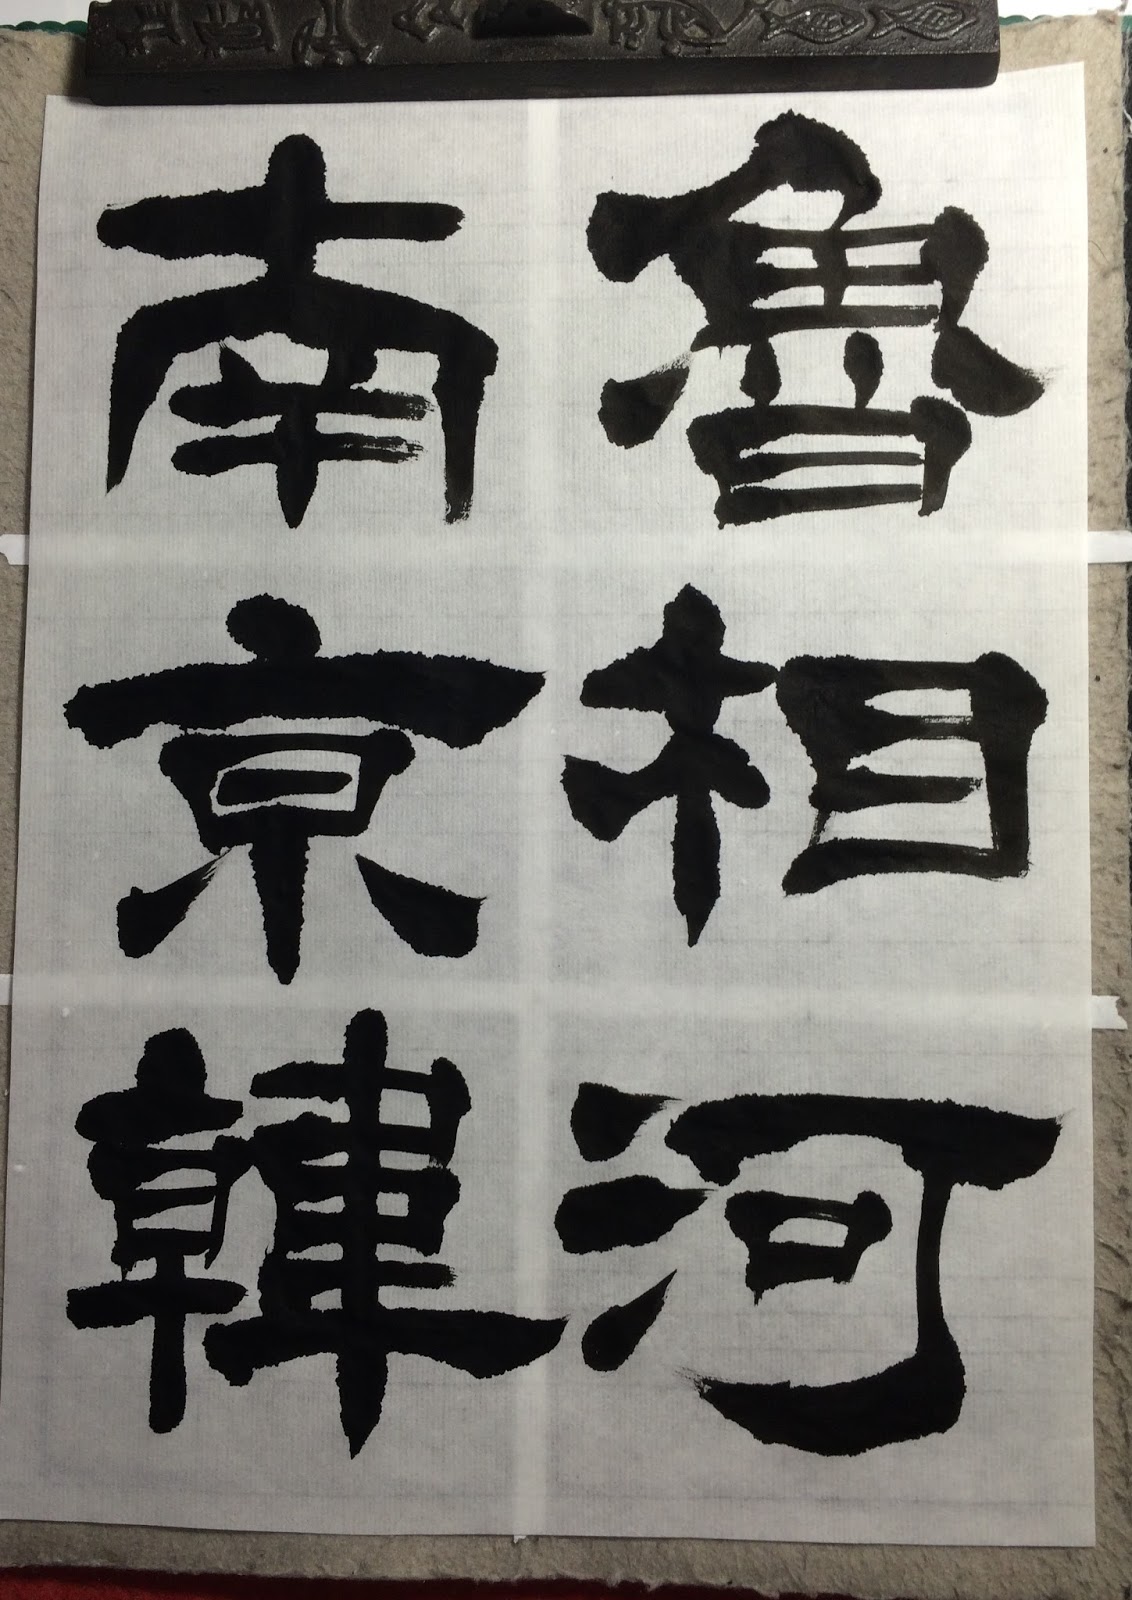 魯相河
南京韓